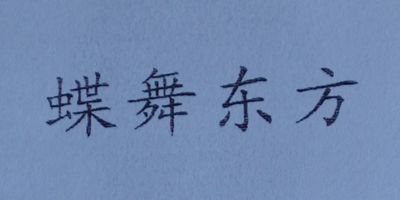 蝶舞东方